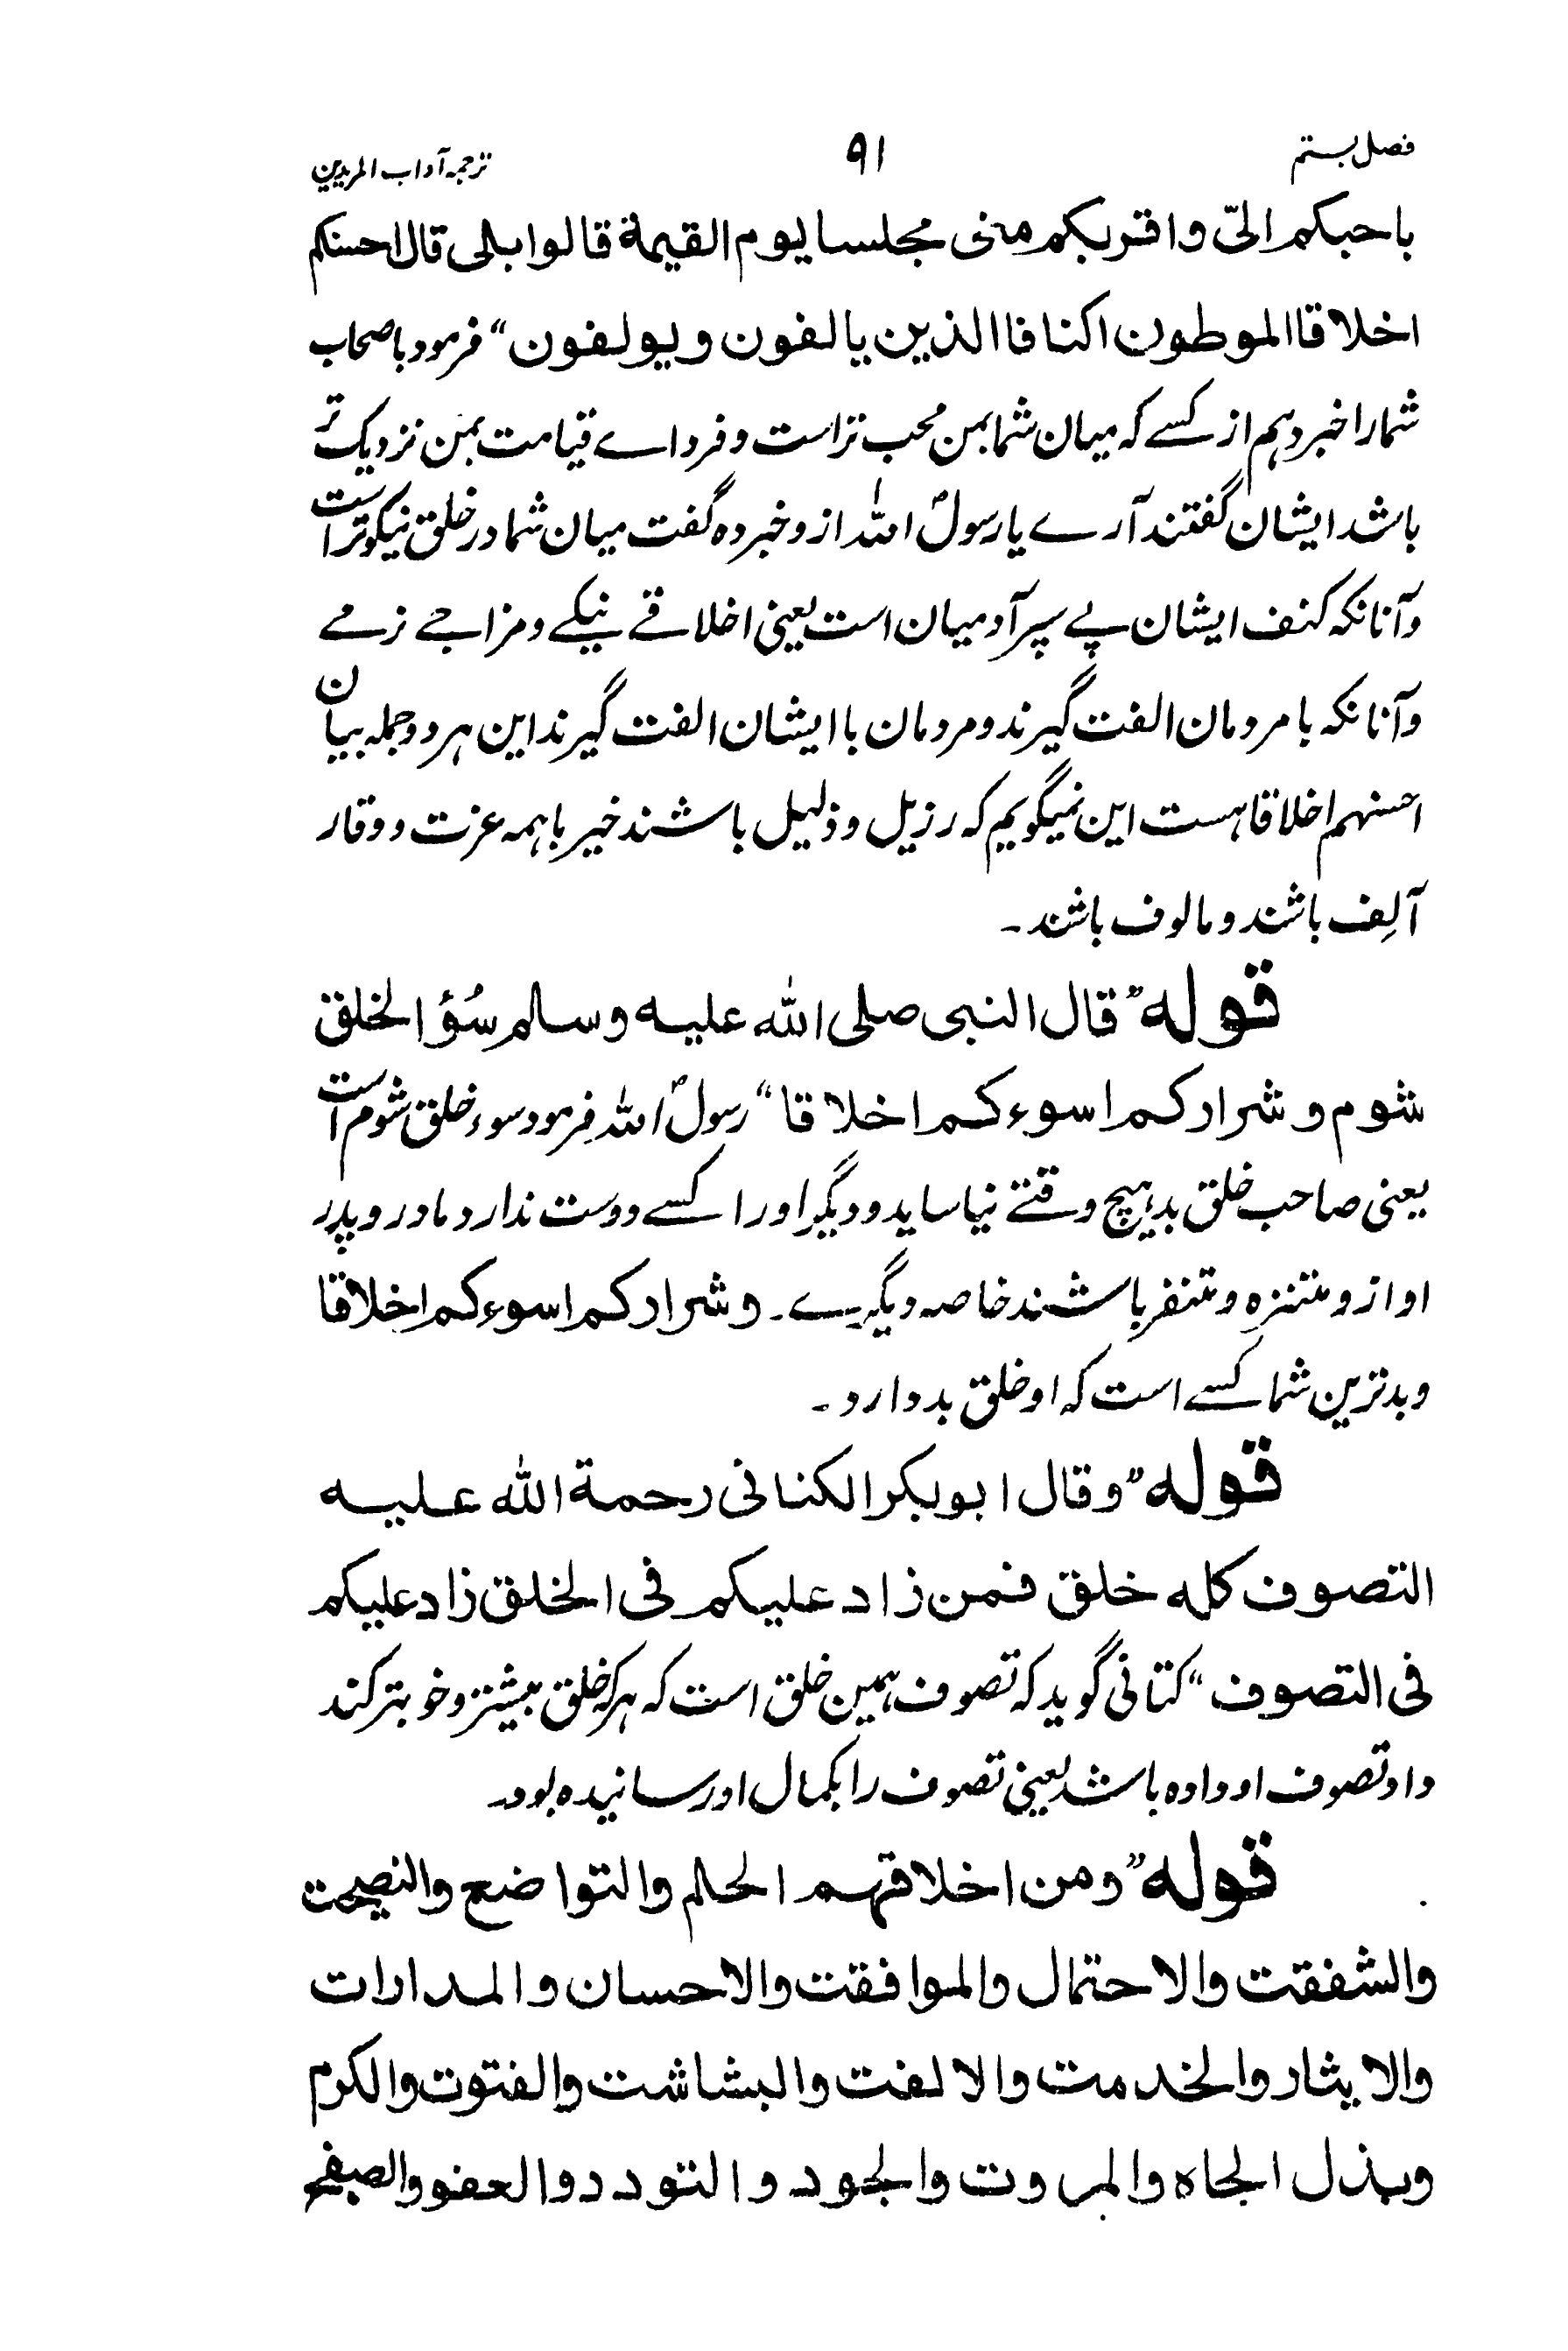 فصل بستم ۹۱ ترجمہ آداب المریدین
باحبکم الیّ واقربکم منی مجلسا یوم القیمة قالوا بلی قال احسنکم
اخلاقا الموطون اکنافا الذین یالفون ویولفون“ فرمود باصحاب
شمارا خبر دہم از کسے کہ میان شما بمن محب تر است و فرداے قیامت بمن نزدیک تر
باشد ایشان گفتند آرے یا رسولؐ اللہ از و خبر دہ گفت میان شما در خلق نیکوتر است
وآنانکہ کنف ایشان پے سپر آدمیان است یعنی اخلاقے نیکے و مزاجے نرمے
وآنانکہ با مردمان الفت گیرند و مردمان با ایشان الفت گیرند این ہر دو جملہ بیان
احسنہم اخلاقا ہست این نمیگویم کہ رزیل و ذلیل باشند خیر با ہمہ عزت و وقار
آلِف باشند و مالوف باشند۔
قولہ ”قال النبی صلی اللہ علیہ وسلم سُؤ الخلق
شوم و شرارکم اسوءکم اخلاقا“ رسولؐ اللہ فرمود سوء خلق شوم است
یعنی صاحب خلق بد ہیچ وقتے نیاساید و دیگر اورا کسے دوست ندارد مادر و پدر
او از و متنزہ و متنفر باشند خاصہ دیگرے۔ و شرارکم اسوءکم اخلاقا
و بدترین شما کسے است کہ او خلق بد دارد۔
قولہ ”وقال ابوبکر الکنانی رحمة اللہ علیہ
التصوف کلہ خلق فمن زاد علیکم فی الخلق زاد علیکم
فی التصوف“ کتانی گوید کہ تصوف ہمین خلق است کہ ہر کہ خلق بیشتر و خوبتر کند
داد تصوف او دادہ باشد یعنی تصوف را بکمال او رسانیدہ بود۔
قولہ ”ومن اخلاقہم الحلم والتواضع والنصیحت
والشفقت والاحتمال والموافقت والاحسان والمدارات
والایثار والخدمت والالفت والبشاشت والفتوت والکرم
وبذل الجاہ والمروت والجود والتودد والعفو والصفح